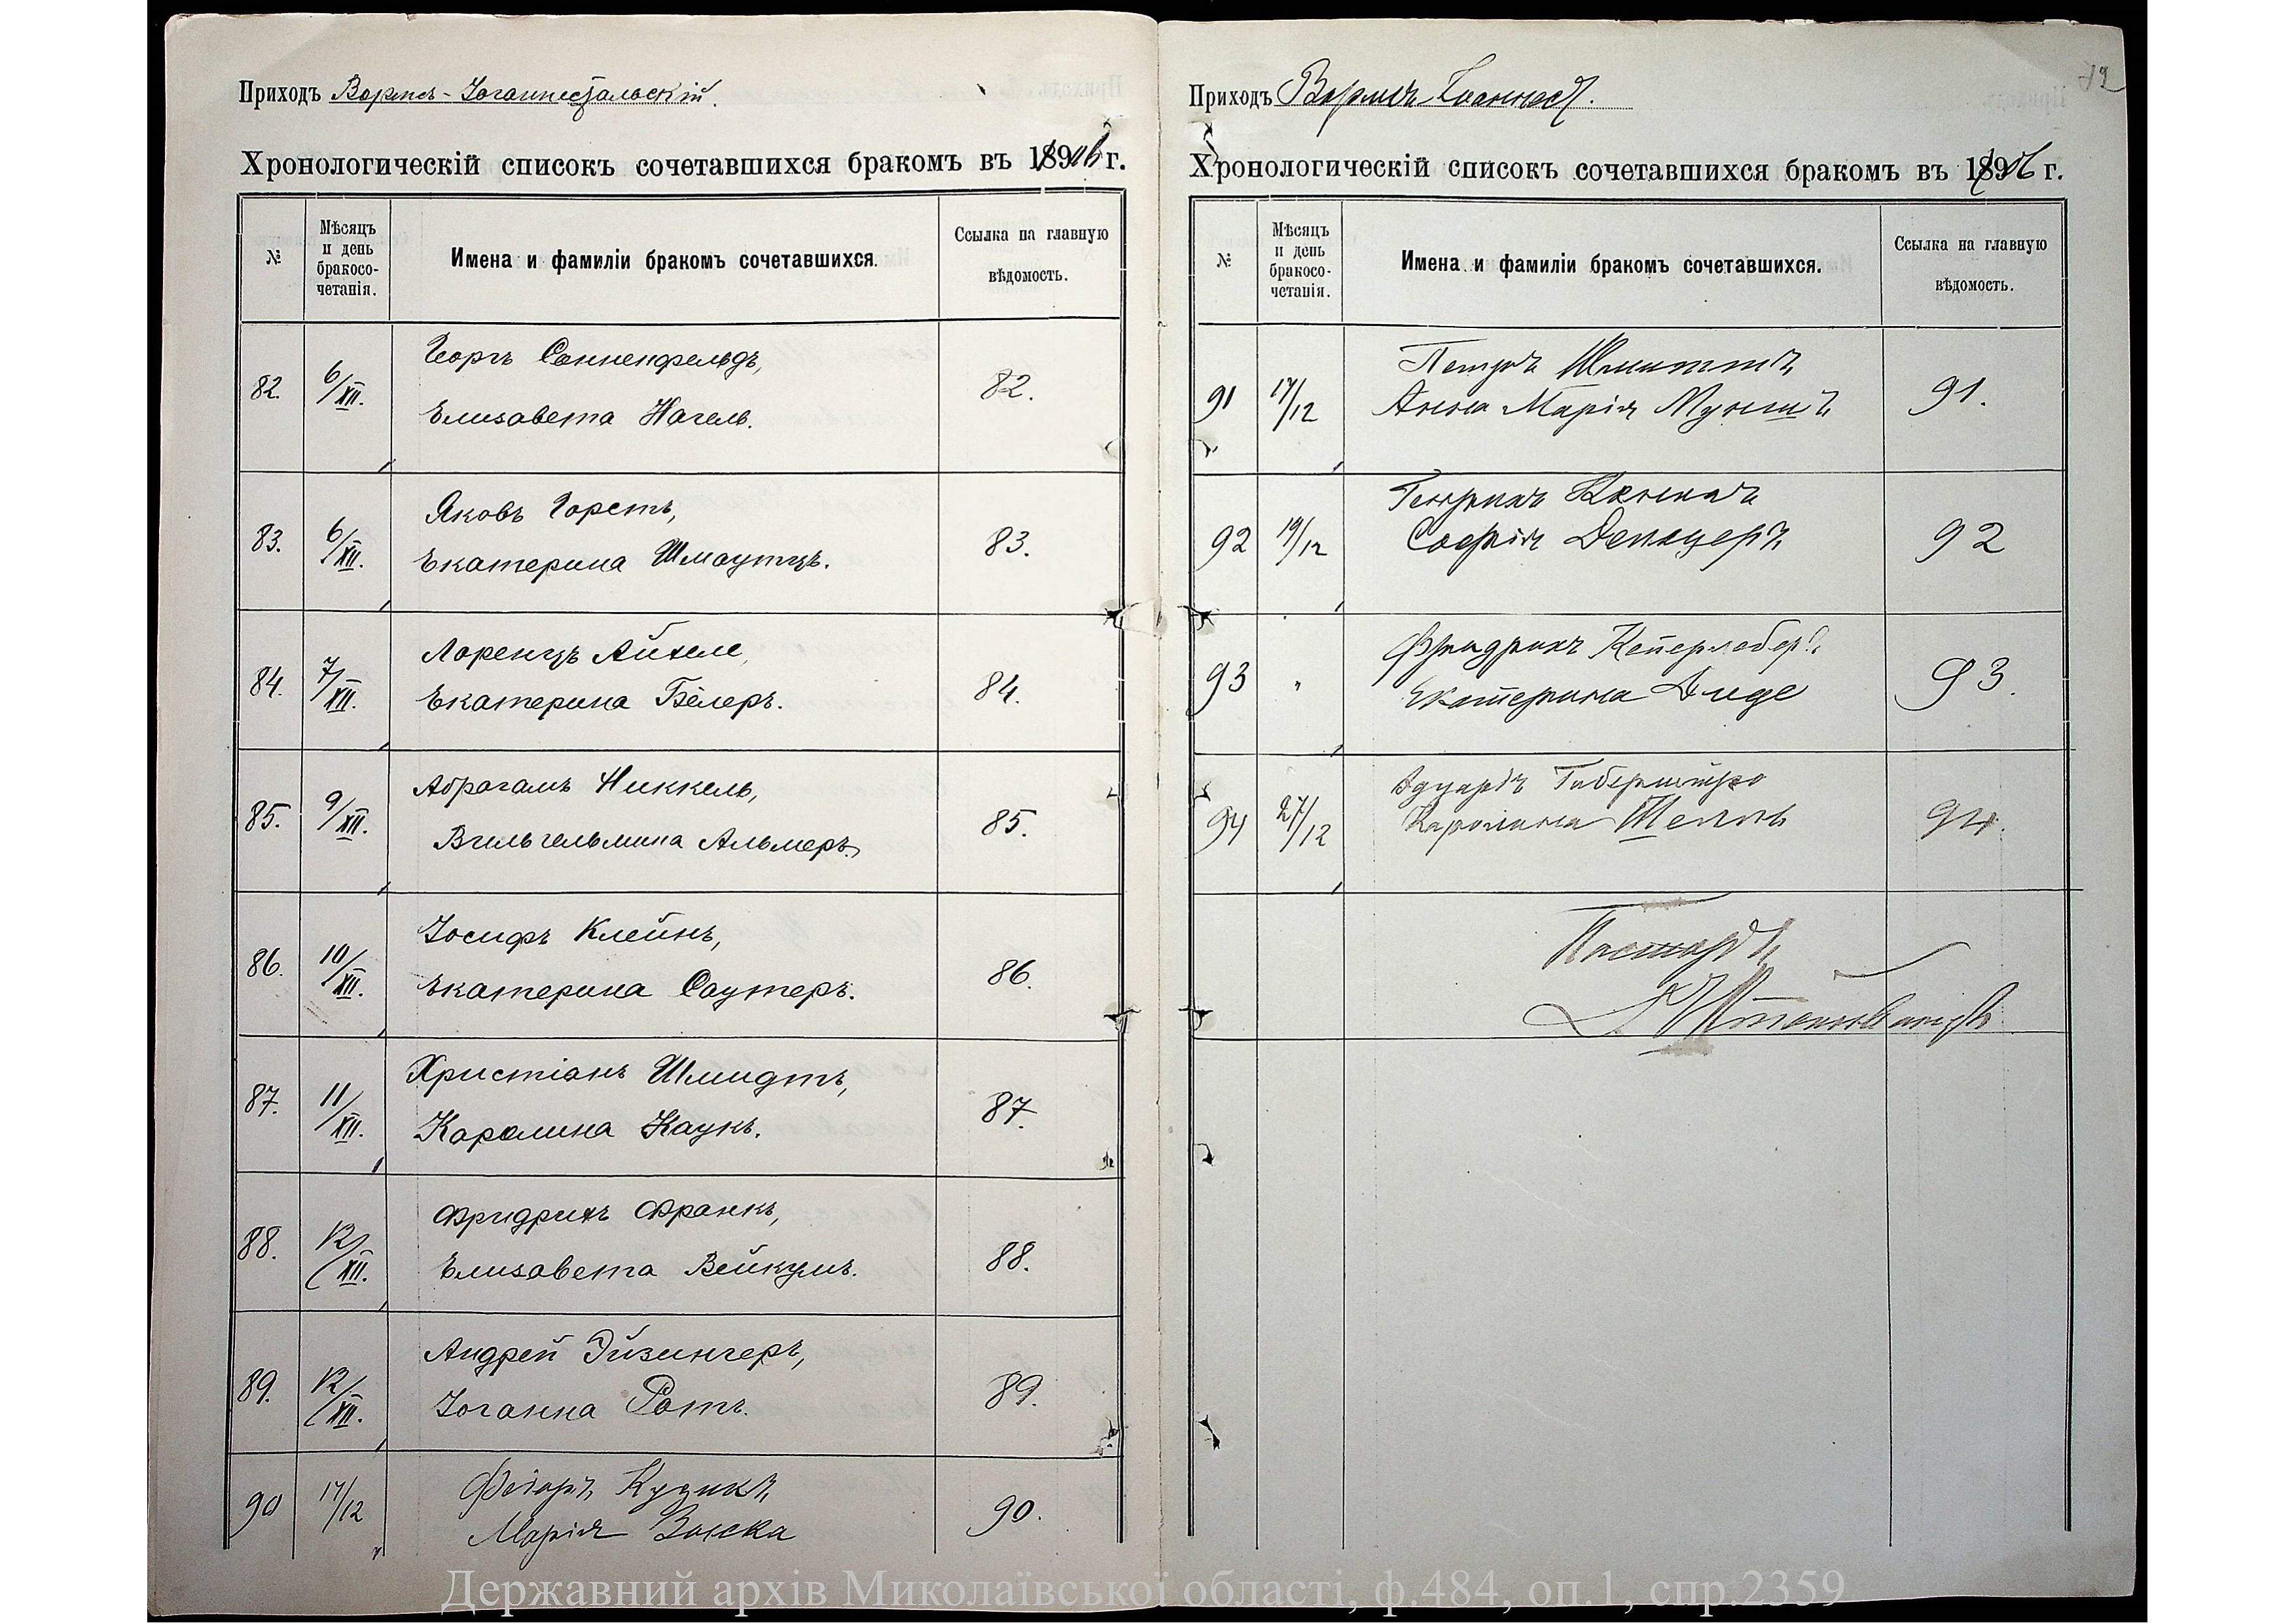 Приходъ Вормсъ-Іоганнестальскій.
Хронологическій списокъ сочетавшихся бракомъ въ 1906 г.
№
Мѣсяцъ и день бракосо-четанія.
Имена и фамиліи бракомъ сочетавшихся.
Ссылка на главную вѣдомость.
82. 6/XII. Георгъ Сонненфельдъ, 82.
Елизавета Нагель.
83. 6/XII. Яковъ Горстъ, 83.
Екатерина Шмаутцъ.
84. 7/XII. Лоренцъ Айхеле, 84.
Екатерина Бёлеръ.
85. 9/XII. Абрагамъ Никкель, 85.
Вильгельмина Альмеръ.
86. 10/XII. Іосифъ Клейнъ, 86.
Екатерина Саутеръ.
87. 11/XII. Христіанъ Шмидтъ, 87.
Каролина Каукъ.
88. 12/XII. Фридрихъ Франкъ, 88.
Елизавета Вейкумъ.
89. 12/XII. Андрей Эйзингеръ, 89.
Іоганна Ротъ.
90 17/12 Ѳедоръ 90.
Марія
12
Приходъ Вормсъ-Іоаннест.
Хронологическій списокъ сочетавшихся бракомъ въ 1906 г.
№
Мѣсяцъ и день бракосо-четанія.
Имена и фамиліи бракомъ сочетавшихся.
Ссылка на главную вѣдомость.
91 17/12 Петръ Шмиттъ 91.
Анна Марія
92 19/12 Генрихъ 92
Софія Дельцеръ
93 " Фридрихъ 93.
Екатерина Диде
94 27/12 Эдуардъ 94.
Каролина
Пасторъ
Державний архів Миколаївської області, ф.484, оп.1, спр.2359